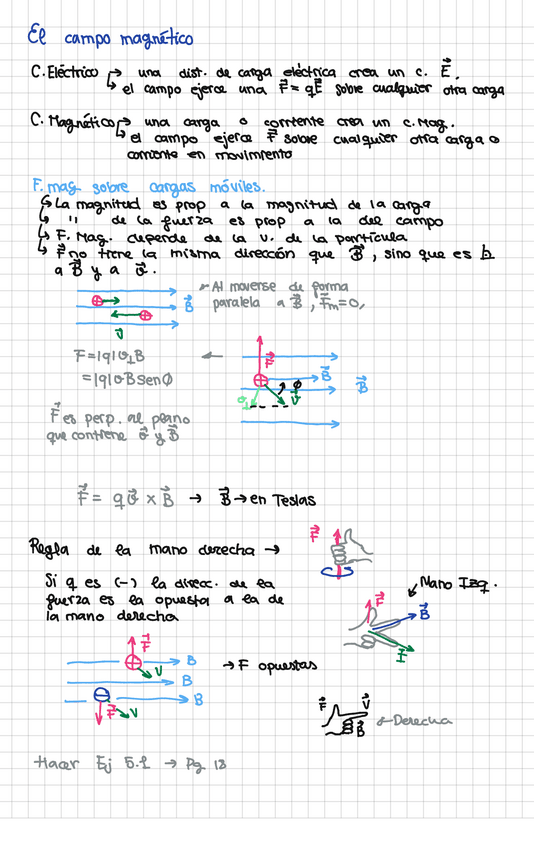 El campo magnético
C. Eléctrico → una dist. de carga eléctrica crea un c. E⃗.
↳ el campo ejerce una F⃗ = qE⃗ sobre cualquier otra carga
C. Magnético → una carga o corriente crea un c. Mag.
↳ el campo ejerce F⃗ sobre cualquier otra carga o
corriente en movimiento
F. mag sobre cargas móviles.
↳ La magnitud es prop a la magnitud de la carga
↳ " de la fuerza es prop a la del campo
↳ F. Mag. depende de la v. de la partícula
↳ F⃗ no tiene la misma dirección que B⃗, sino que es ⊥
a B⃗ y a v⃗.
→ Al moverse de forma
paralela a B⃗, F⃗m=0,
B⃗
v⃗
F = |q|v⊥B
= |q|vBsenϕ
←
F⃗
B⃗
ϕ
B⃗
v⊥
v⃗
F⃗ es perp. al plano
que contiene v⃗ y B⃗
F⃗ = qv⃗ × B⃗ → B⃗ → en Teslas
Regla de la mano derecha →
F⃗
Si q es (-) la direcc. de la
fuerza es la opuesta a la de
la mano derecha
Mano Izq.
F⃗
B⃗
I⃗
F⃗
B
V
B
B
F⃗
V
→ F opuestas
F⃗
V⃗
B⃗
← Derecha
Hacer Ej 5.1 → Pg 13